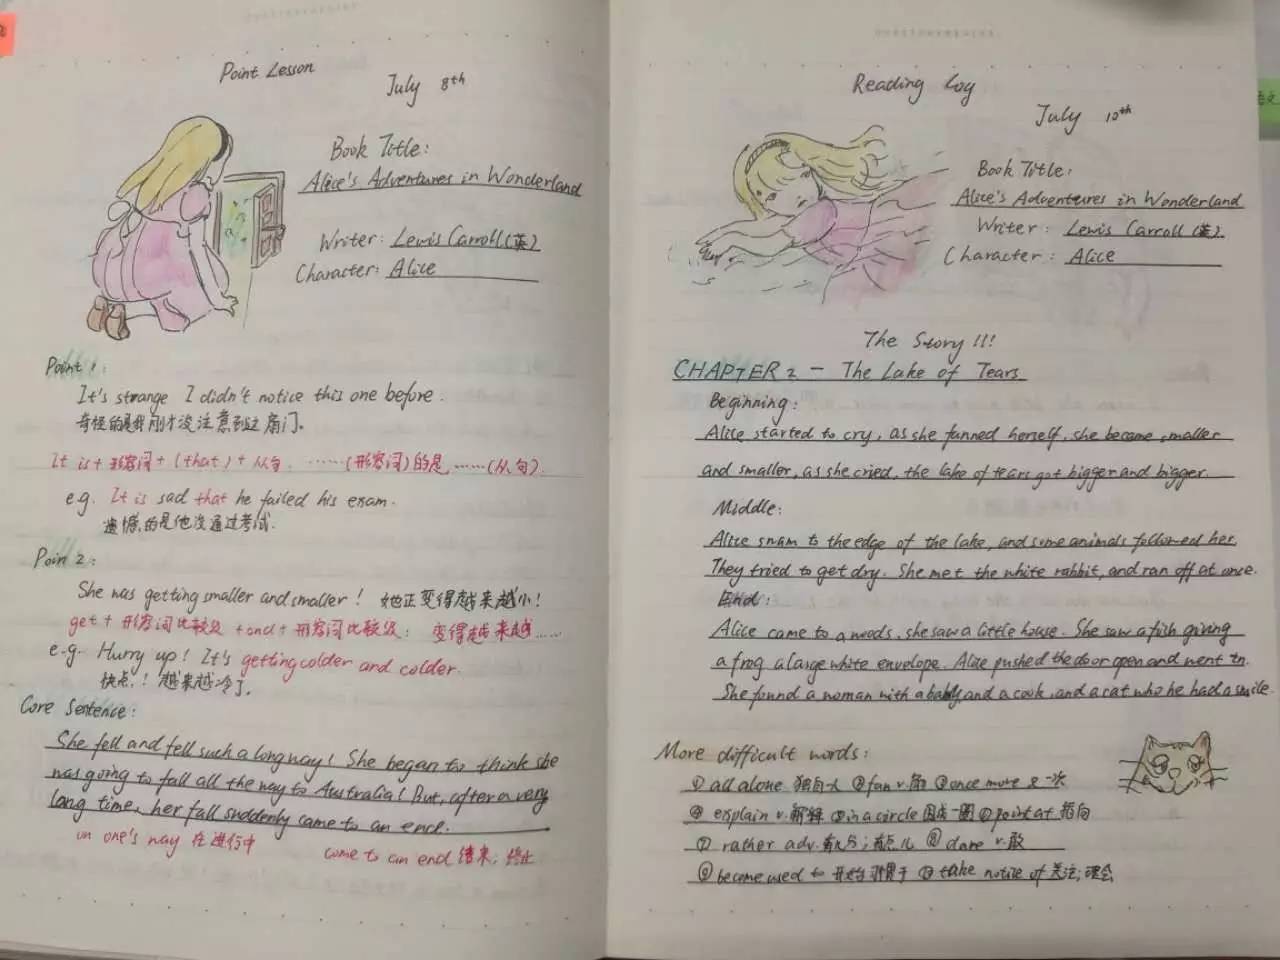 Point Lesson
July 8th
Book Title:
Alice's Adventures in Wonderland
Writer: Lewis Carroll (英)
Character: Alice
Point 1:
It's strange I didn't notice this one before.
奇怪的是我刚才没注意到这扇门。
It is + 形容词 + (that) + 从句. ……(形容词)的是,……(从句).
e.g. It is sad that he failed his exam.
遗憾的是他没通过考试.
Poin 2:
She was getting smaller and smaller! 她正变得越来越小!
get + 形容词比较级 + and + 形容词比较级: 变得越来越……
e.g. Hurry up! It's getting colder and colder.
快点! 越来越冷了。
Core Sentence:
She fell and fell such a long way! She began to think she
was going to fall all the way to Australia! But, after a very
long time, her fall suddenly came to an end.
on one's way 在进行中
come to an end 结束; 终止
Reading Log
July 10th
Book Title:
Alice's Adventures in Wonderland
Writer: Lewis Carroll (英).
Character: Alice
The Story!!!
CHAPTER 2 - The Lake of Tears
Beginning:
Alice started to cry, as she fanned herself, she became smaller
and smaller, as she cried, the lake of tears got bigger and bigger.
Middle:
Alice swam to the edge of the lake, and some animals followed her.
They tried to get dry. She met the white rabbit, and ran off at once.
End:
Alice came to a woods, she saw a little house. She saw a fish giving
a frog a large white envelope. Alice pushed the door open and went in.
She found a woman with a baby, and a cook, and a cat who he had a smile.
More difficult words:
① all alone 独自一人 ② fan v. 扇 ③ once more 又一次
④ explain v. 解释 ⑤ in a circle 围成一圈 ⑥ point at 指向
⑦ rather adv. 有几分; 有点儿 ⑧ dare v. 敢
⑨ become used to 开始习惯于 ⑩ take notice of 关注; 理会